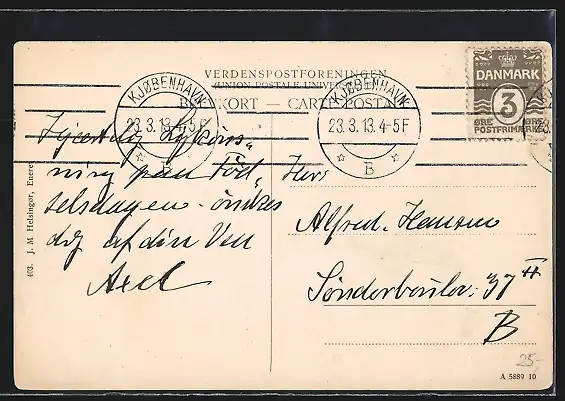 VERDENSPOSTFORENINGEN
(UNION POSTALE UNIVERSELLE)
BREVKORT — CARTE POSTALE
KJØBENHAVN
23.3.13.4-5F
B
KJØBENHAVN
23.3.13.4-5F
B
DANMARK
3
ØRE ØRE
POSTFRIMÆRKE
Hjertelig Lykøns-
ning paa Föd-
selsdagen. önskes
dig af din Ven
Axel
Herr
Alfred Hansen
Sönderboulev. 37 II
B
403. J. M. Helsingør, Eneret
25,-
A 5889 10